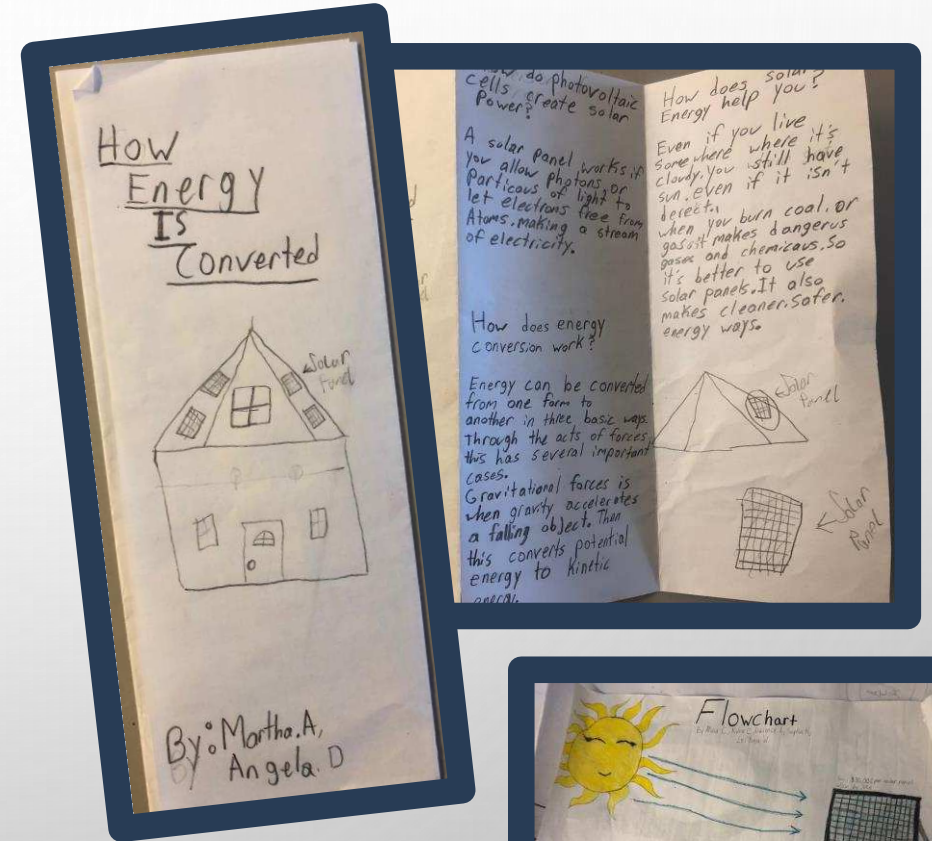 How
Energy
IS
Converted
Solar
Panel
By: Martha.A,
Angela.D
How do photovoltaic
cells create solar
Power?
A solar panel works if
you allow photons, or
Particaus of light to
let electrons free from
Atoms, making a stream
of electricity.
How does energy
conversion work?
Energy can be converted
from one form to
another in three basic ways
Through the acts of forces,
this has several important
cases.
Gravitational forces is
when gravity accelerates
a falling object. Then
this converts potential
energy to Kinetic
energy.
How does solar
Energy help you?
Even if you live
Somewhere where it's
cloudy, you still have
sun, even if it isn't
derect.
when you burn coal, or
gas it makes dangerus
gases and chemicaus. So
it's better to use
solar panels. It also
makes cleaner, safer,
energy ways.
Solar
Panel
Solar
Panel
Flowchart